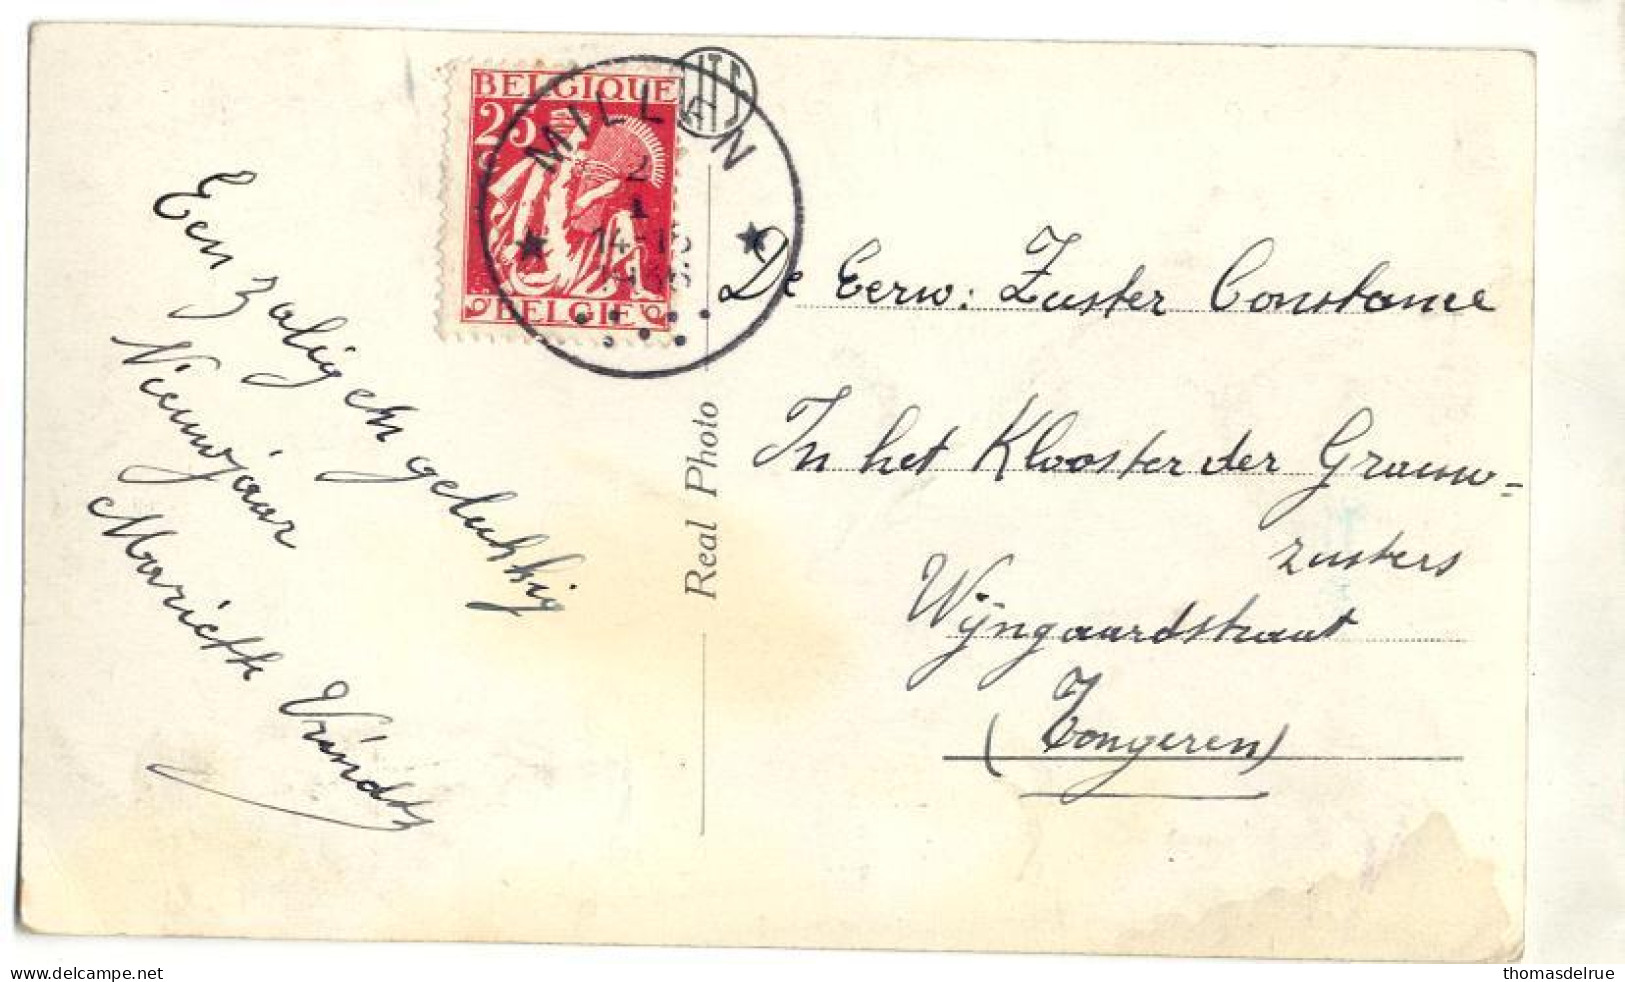 BELGIQUE
25
c
BELGIË
MILLEN
2
1
14-15
Een zalig en gelukkig
Nieuwjaar
Mariette Vrindts
Real Photo
De Eerw: Zuster Constance
In het Klooster der Grauw=
zusters
Wijngaardstraat
(Tongeren)
delcampe.net
thomasdelrue